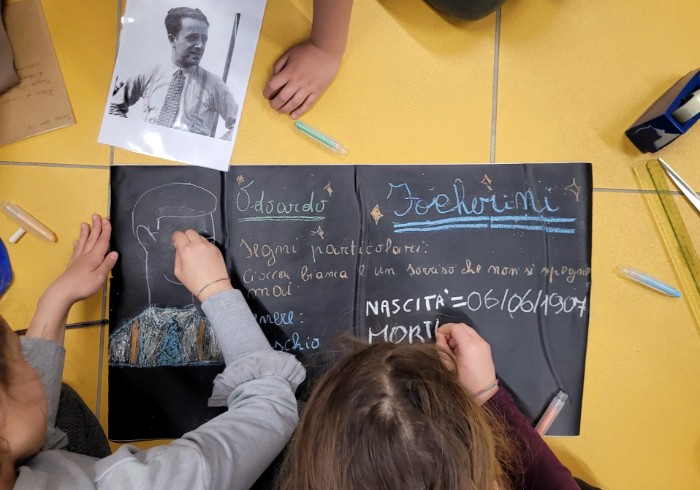 Odoardo Focherini
Segni particolari:
Ciocca bianca e un sorriso che non si spegne
mai.
NASCITÀ=06/06/1907
nere:
MORT
schio